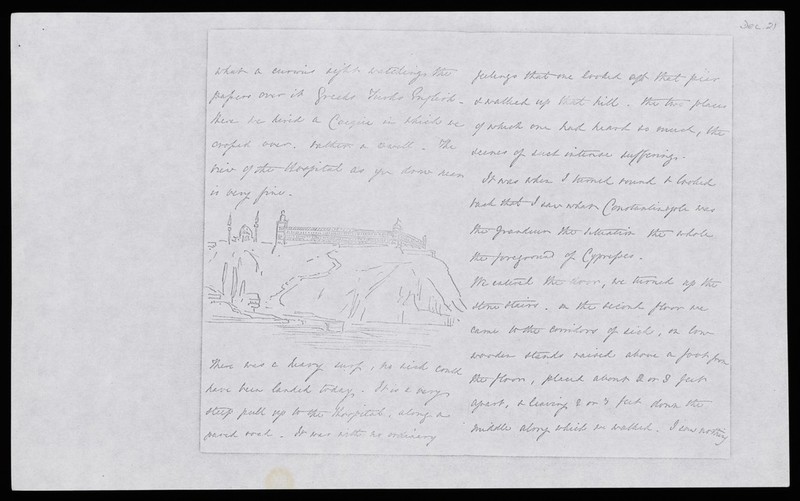 Dec 21
what a curious sight watching the
papers over it Greeks Turks English.
Here we hired a Caique in which we
crossed over. rather a swell. The
view of the Hospital as you draw near
is very fine.
There was a heavy surf, no sick could
have been landed today. It is a very
steep pull up to the Hospital, along a
paved road. It was with no ordinary
feelings that one looked upon that pier
& walked up that hill. the two places
of which one had heard so much, the
scenes of such intense suffering.
It was when I turned round & looked
back that I saw what Constantinople was
the grandeur the situation the whole
the foreground of Cypresses.
We entered the door, we turned up the
stone stairs. on the second floor we
came to the corridors of sick, on low
wooden stands raised above a foot from
the floor, placed about 2 or 3 feet
apart, & leaving 2 or 3 feet down the
middle along which we walked. I saw nothing